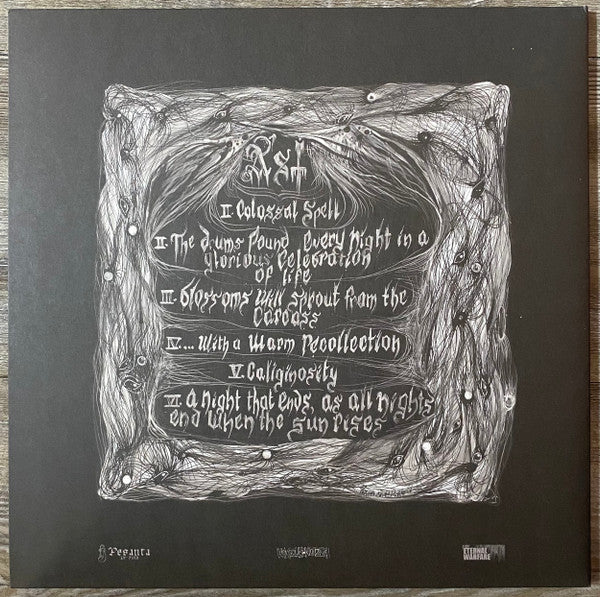 Ast
I Colossal Spell
II. The drums Pound every Night in a
glorious Celebration
of life
III. Blossoms Will Sprout from the
Carcass
IV... With a Warm Recollection
V. Caliginosity
VI a Night that ends, as all Nights
end When the Sun Rises
Pesanta
ETERNAL
WARFARE